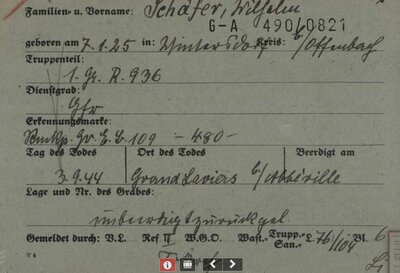 Familien- u. Vorname: Schäfer, Wilhelm
G-A 490/0821
geboren am 7.1.25 in: Wintersdorf Kreis: b/Offenbach
Truppenteil:
1. Gr. R. 936
Dienstgrad:
Gfr
Erkennungsmarke:
Gr. E. B. 109 - 480 -
Tag des Todes Ort des Todes Beerdigt am
3.9.44 Grand Laviers b/Abbéville
Lage und Nr. des Grabes:
unbeerdigt zurückgel.
Gemeldet durch: V.L. Ref II W.G.O. Wast. Trupp.- San.- L. 76/108 Bl. 6
V 4